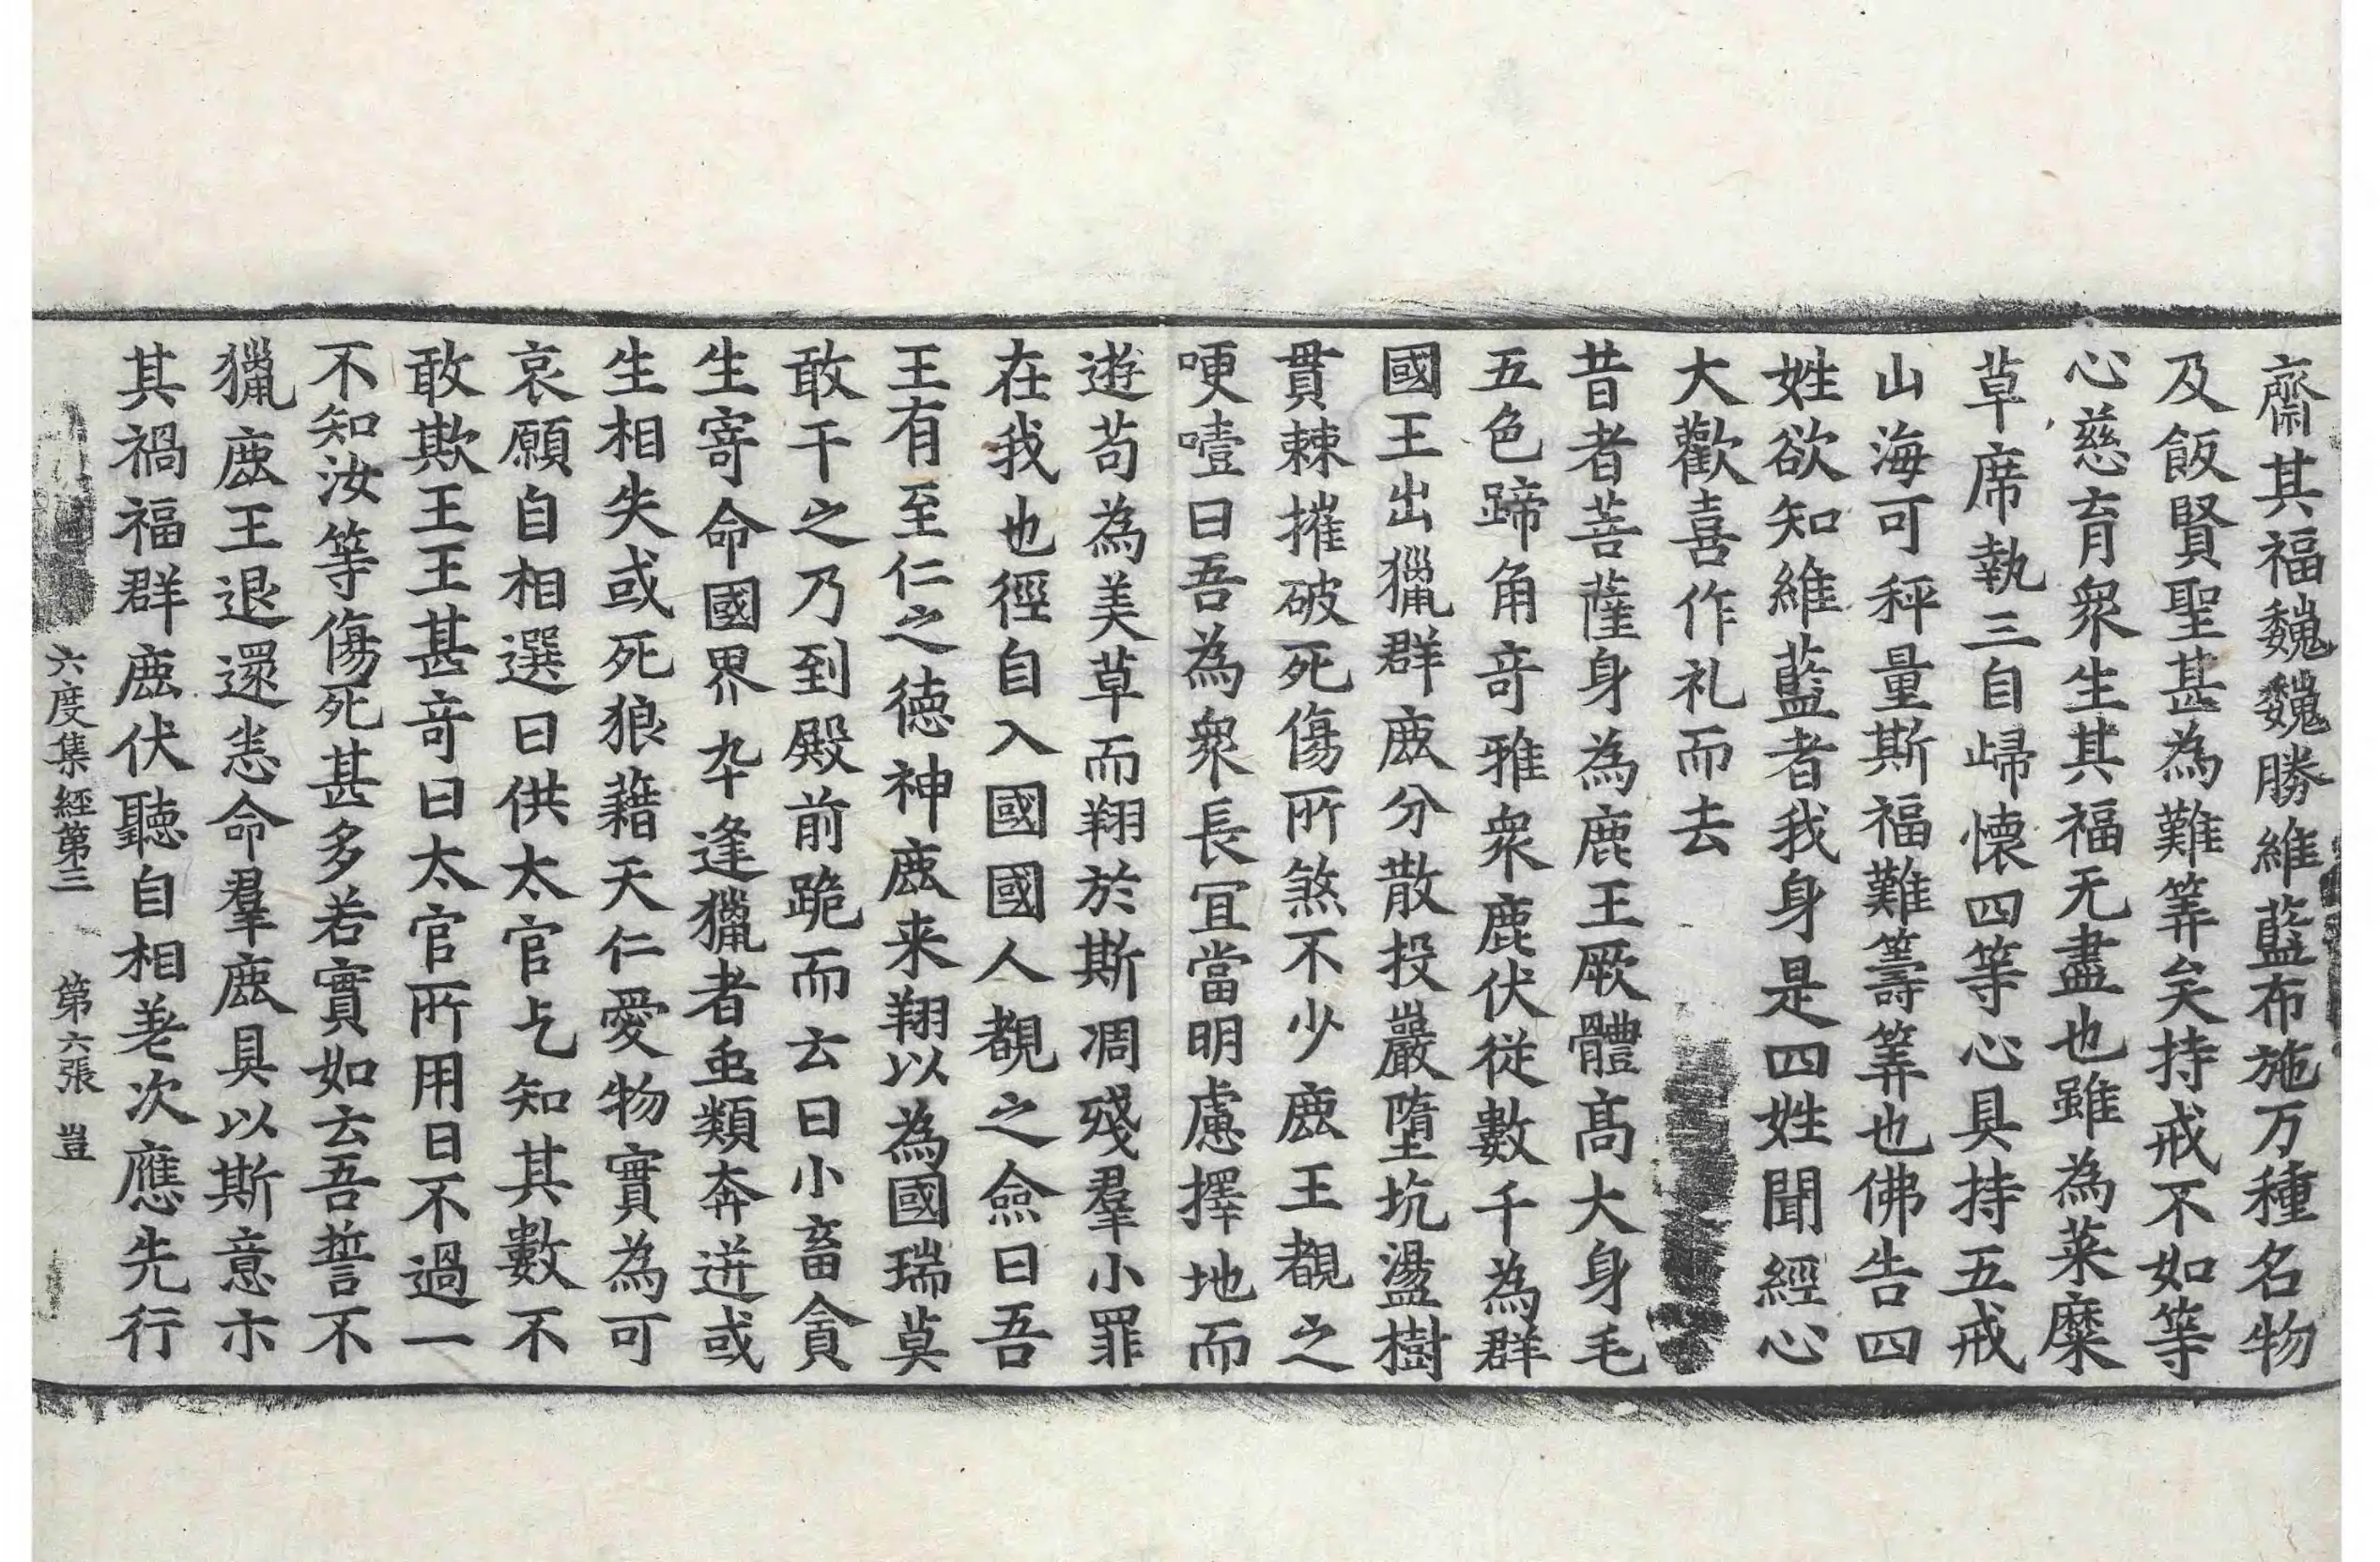 齋其福魏魏勝維藍布施万種名物
及飯賢聖甚為難筭矣持戒不如等
心慈育衆生其福无盡也雖為菜糜
草席執三自歸懷四等心具持五戒
山海可秤量斯福難籌筭也佛告四
姓欲知維藍者我身是四姓聞經心
大歡喜作礼而去
昔者菩薩身為鹿王厥體髙大身毛
五色蹄角奇雅衆鹿伏從數千為群
國王出獵群鹿分散投巖墮坑盪樹
貫棘摧破死傷所煞不少鹿王覩之
哽噎曰吾為衆長冝當明慮擇地而
遊苟為美草而翔於斯凋殘羣小罪
在我也徑自入國國人覩之僉曰吾
王有至仁之德神鹿来翔以為國瑞莫
敢干之乃到殿前跪而云曰小畜貪
生寄命國界卒逢獵者虫類奔迸或
生相失或死狼藉天仁愛物實為可
哀願自相選日供太官乞知其數不
敢欺王王甚奇曰太官所用日不過一
不知汝等傷死甚多若實如云吾誓不
獵鹿王退還恙命羣鹿具以斯意示
其禍福群鹿伏聽自相差次應先行
六度集經第三 第六張 豈